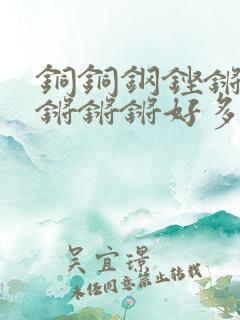 銅銅鋼鏗鏘
鏘鏘鏘好多
吴宜璟
未经同意禁止转载